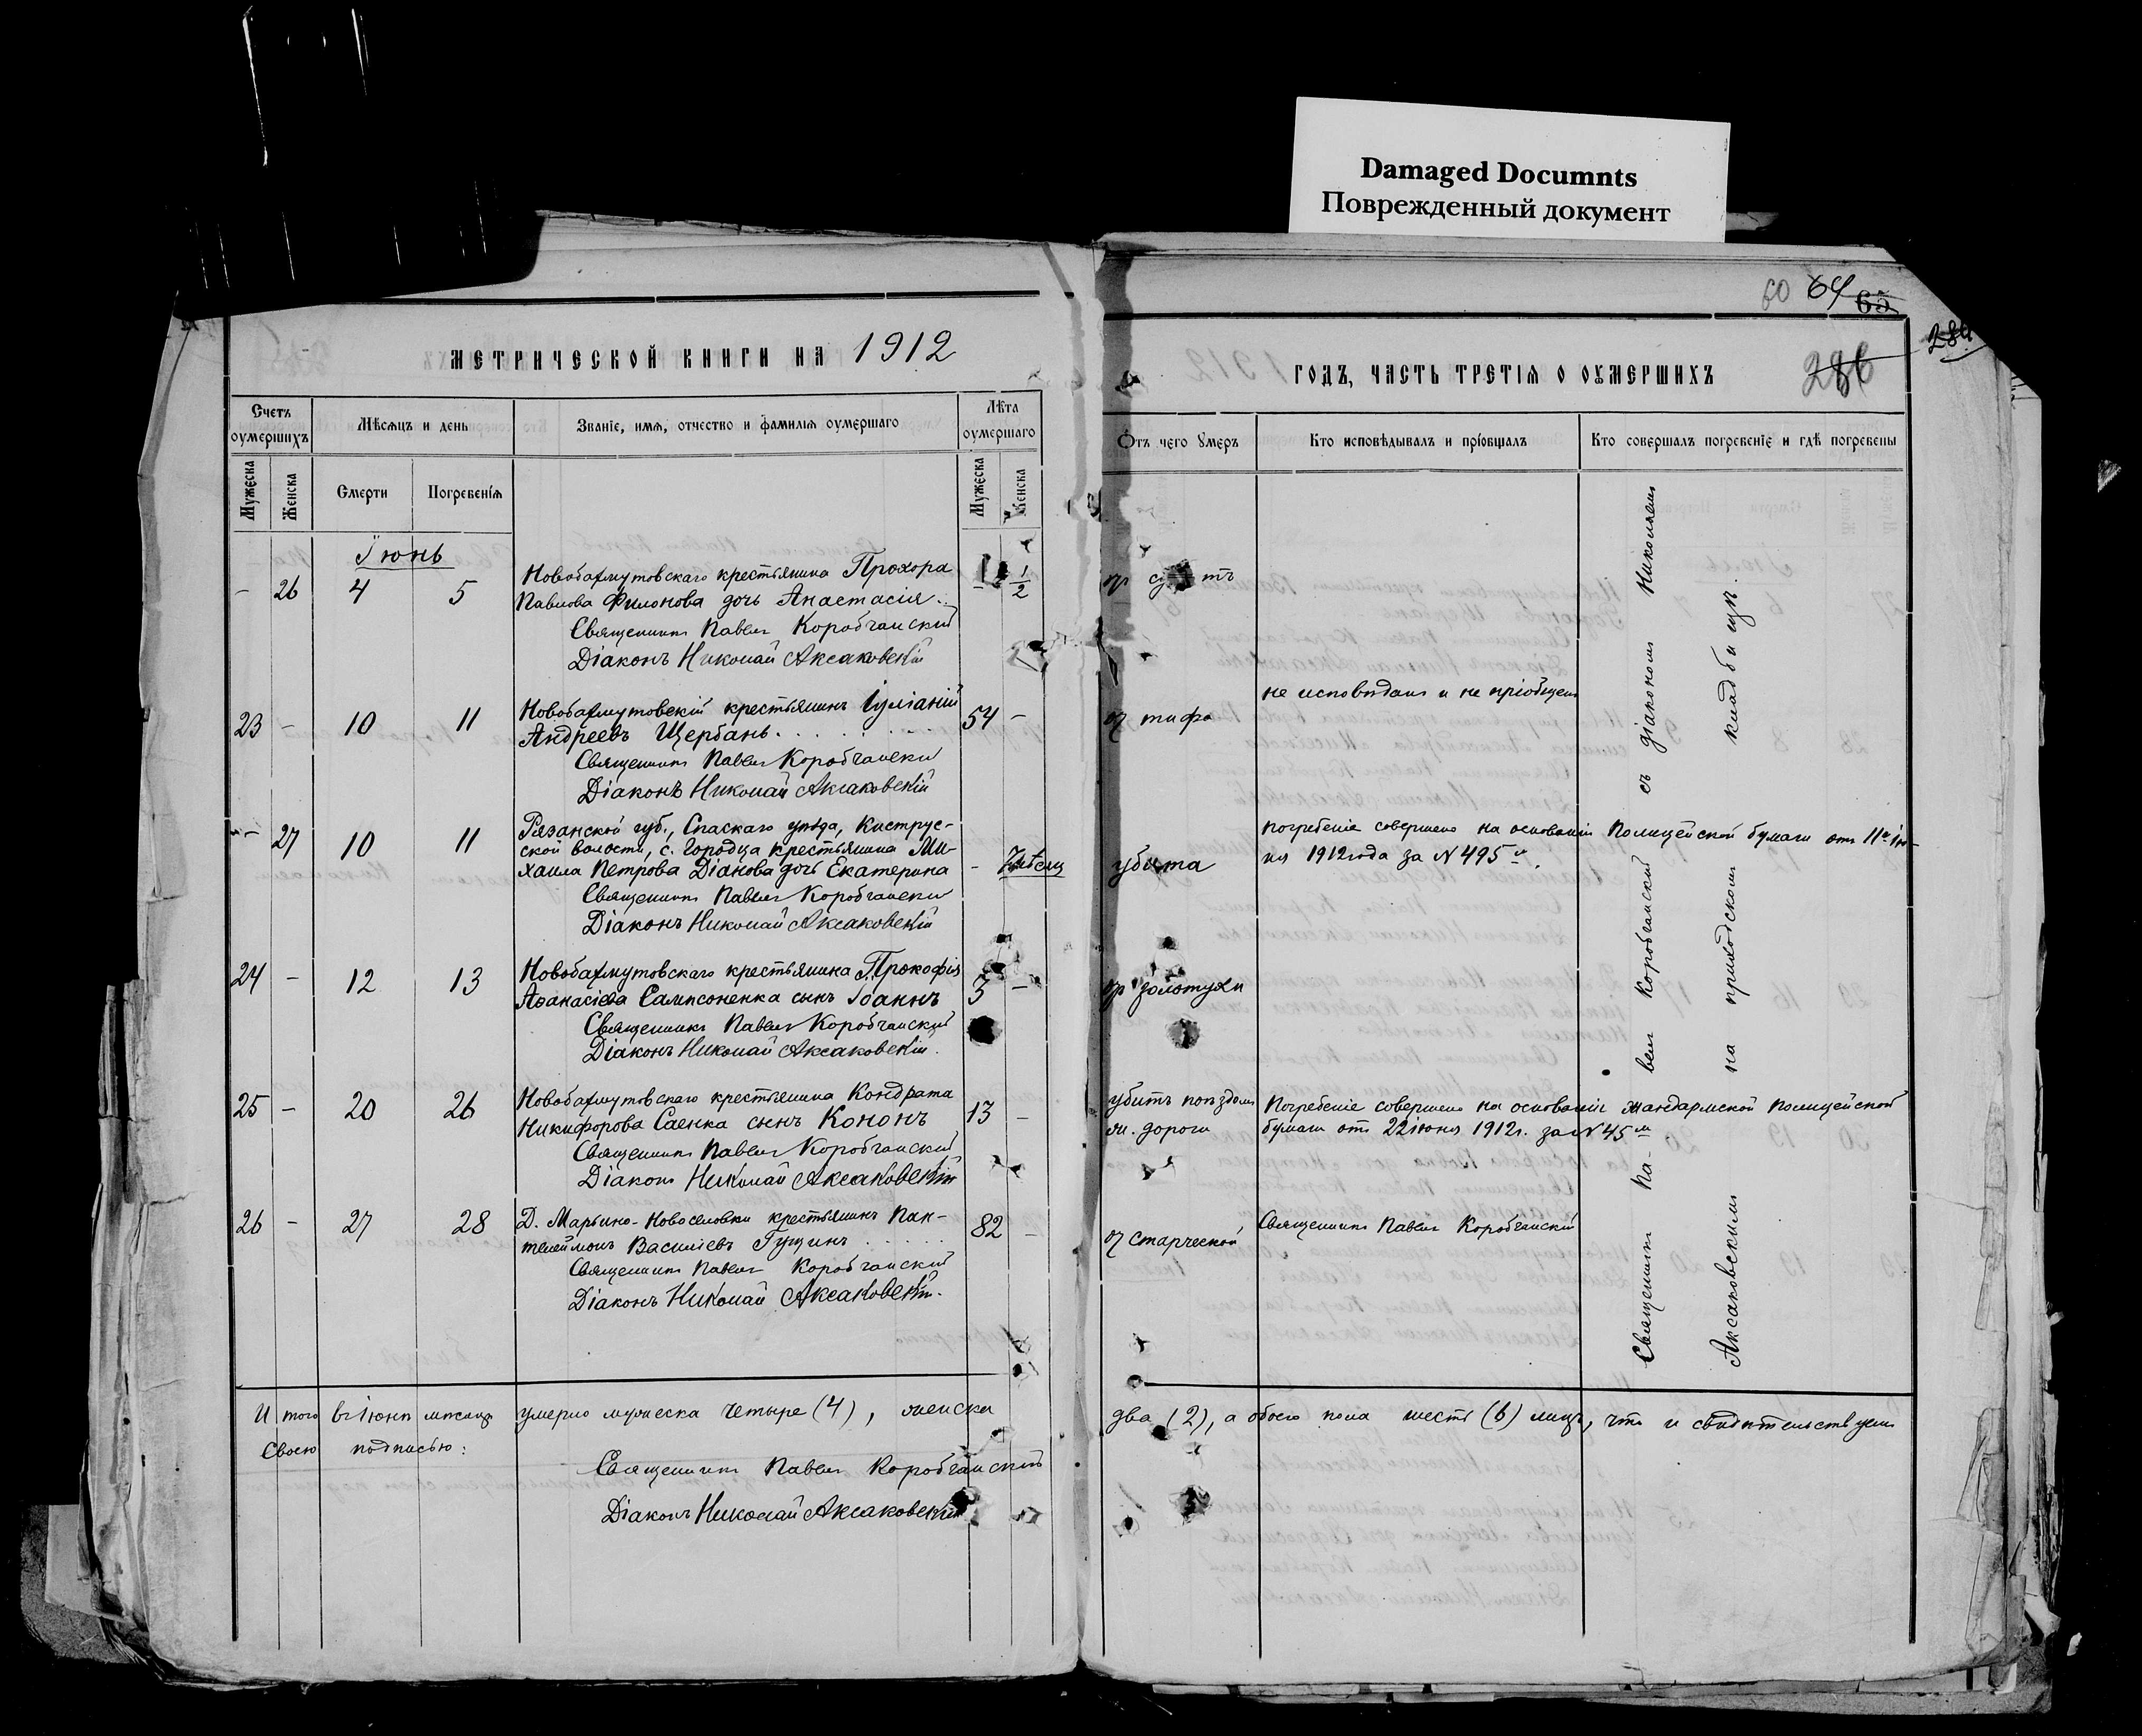 Damaged Documnts
Поврежденный документ
60 64 65
286
МЕТРИЧЕСКОЙ КНИГИ НА 1912
ГОДЪ, ЧАСТЬ ТРЕТІЯ О ОУМЕРШИХЪ
286
Счетъ оумершихъ
Мѣсяцъ и день
Званіе, имя, отчество и фамилія оумершаго
Лѣта оумершаго
Отъ чего умеръ
Кто исповѣдывалъ и пріобщалъ
Кто совершалъ погребеніе и гдѣ погребены
Мужеска
Женска
Смерти
Погребенія
Мужеска
Женска
Іюнь
- 26 4 5 Новобахмутовскаго крестьянина Прохора
Павлова Филонова дочь Анастасія. - 1/2
Священникъ Павелъ Коробчанскій
Діаконъ Николай Аксаковскій
не исповѣданъ и не пріобщенъ
23 - 10 11 Новобахмутовскій крестьянинъ Іуліаній
Андреевъ Щербань 54 - отъ тифа
Священникъ Павелъ Коробчанскій
Діаконъ Николай Аксаковскій
- 27 10 11 Рязанской губ., Спаскаго уѣзда, Киструс-
ской волости, с. Городца крестьянина Ми-
хаила Петрова Діанова дочь Екатерина - убита
погребеніе совершено на основаніи Полицейской бумаги отъ 11го ію-
ня 1912 года за N 495м.
Священникъ Павелъ Коробчанскій
Діаконъ Николай Аксаковскій
24 - 12 13 Новобахмутовскаго крестьянина Прокофія
Аѳанасіева Сампсоненка сынъ Іоаннъ 3 - отъ золотухи
Священникъ Павелъ Коробчанскій
Діаконъ Николай Аксаковскій.
25 - 20 26 Новобахмутовскаго крестьянина Кондрата
Никифорова Саенка сынъ Кононъ 13 -
убитъ поѣздомъ
ж. дороги
Погребеніе совершено на основаніи жандармской полицейской
бумаги отъ 22 іюня 1912 г. за N 45м
Священникъ Павелъ Коробчанскій
Діаконъ Николай Аксаковскій
26 - 27 28 Д. Марьино-Новоселовки крестьянинъ Пан-
телеймонъ Василіевъ Гущинъ 82 - отъ старческой
Священникъ Павелъ Коробчанскій
Священникъ Павелъ Коробчанскій
Діаконъ Николай Аксаковскій.
Священникъ Па- велъ Коробчанскій съ діакономъ Николаемъ
Аксаковскимъ на приходскомъ кладбищѣ.
И того въ іюнѣ мѣсяцѣ умерло мужеска четыре (4), женска два (2), а обоего пола шесть (6) лицъ, что и свидѣтельствуемъ
своею подписью:
Священникъ Павелъ Коробчанскій
Діаконъ Николай Аксаковскій